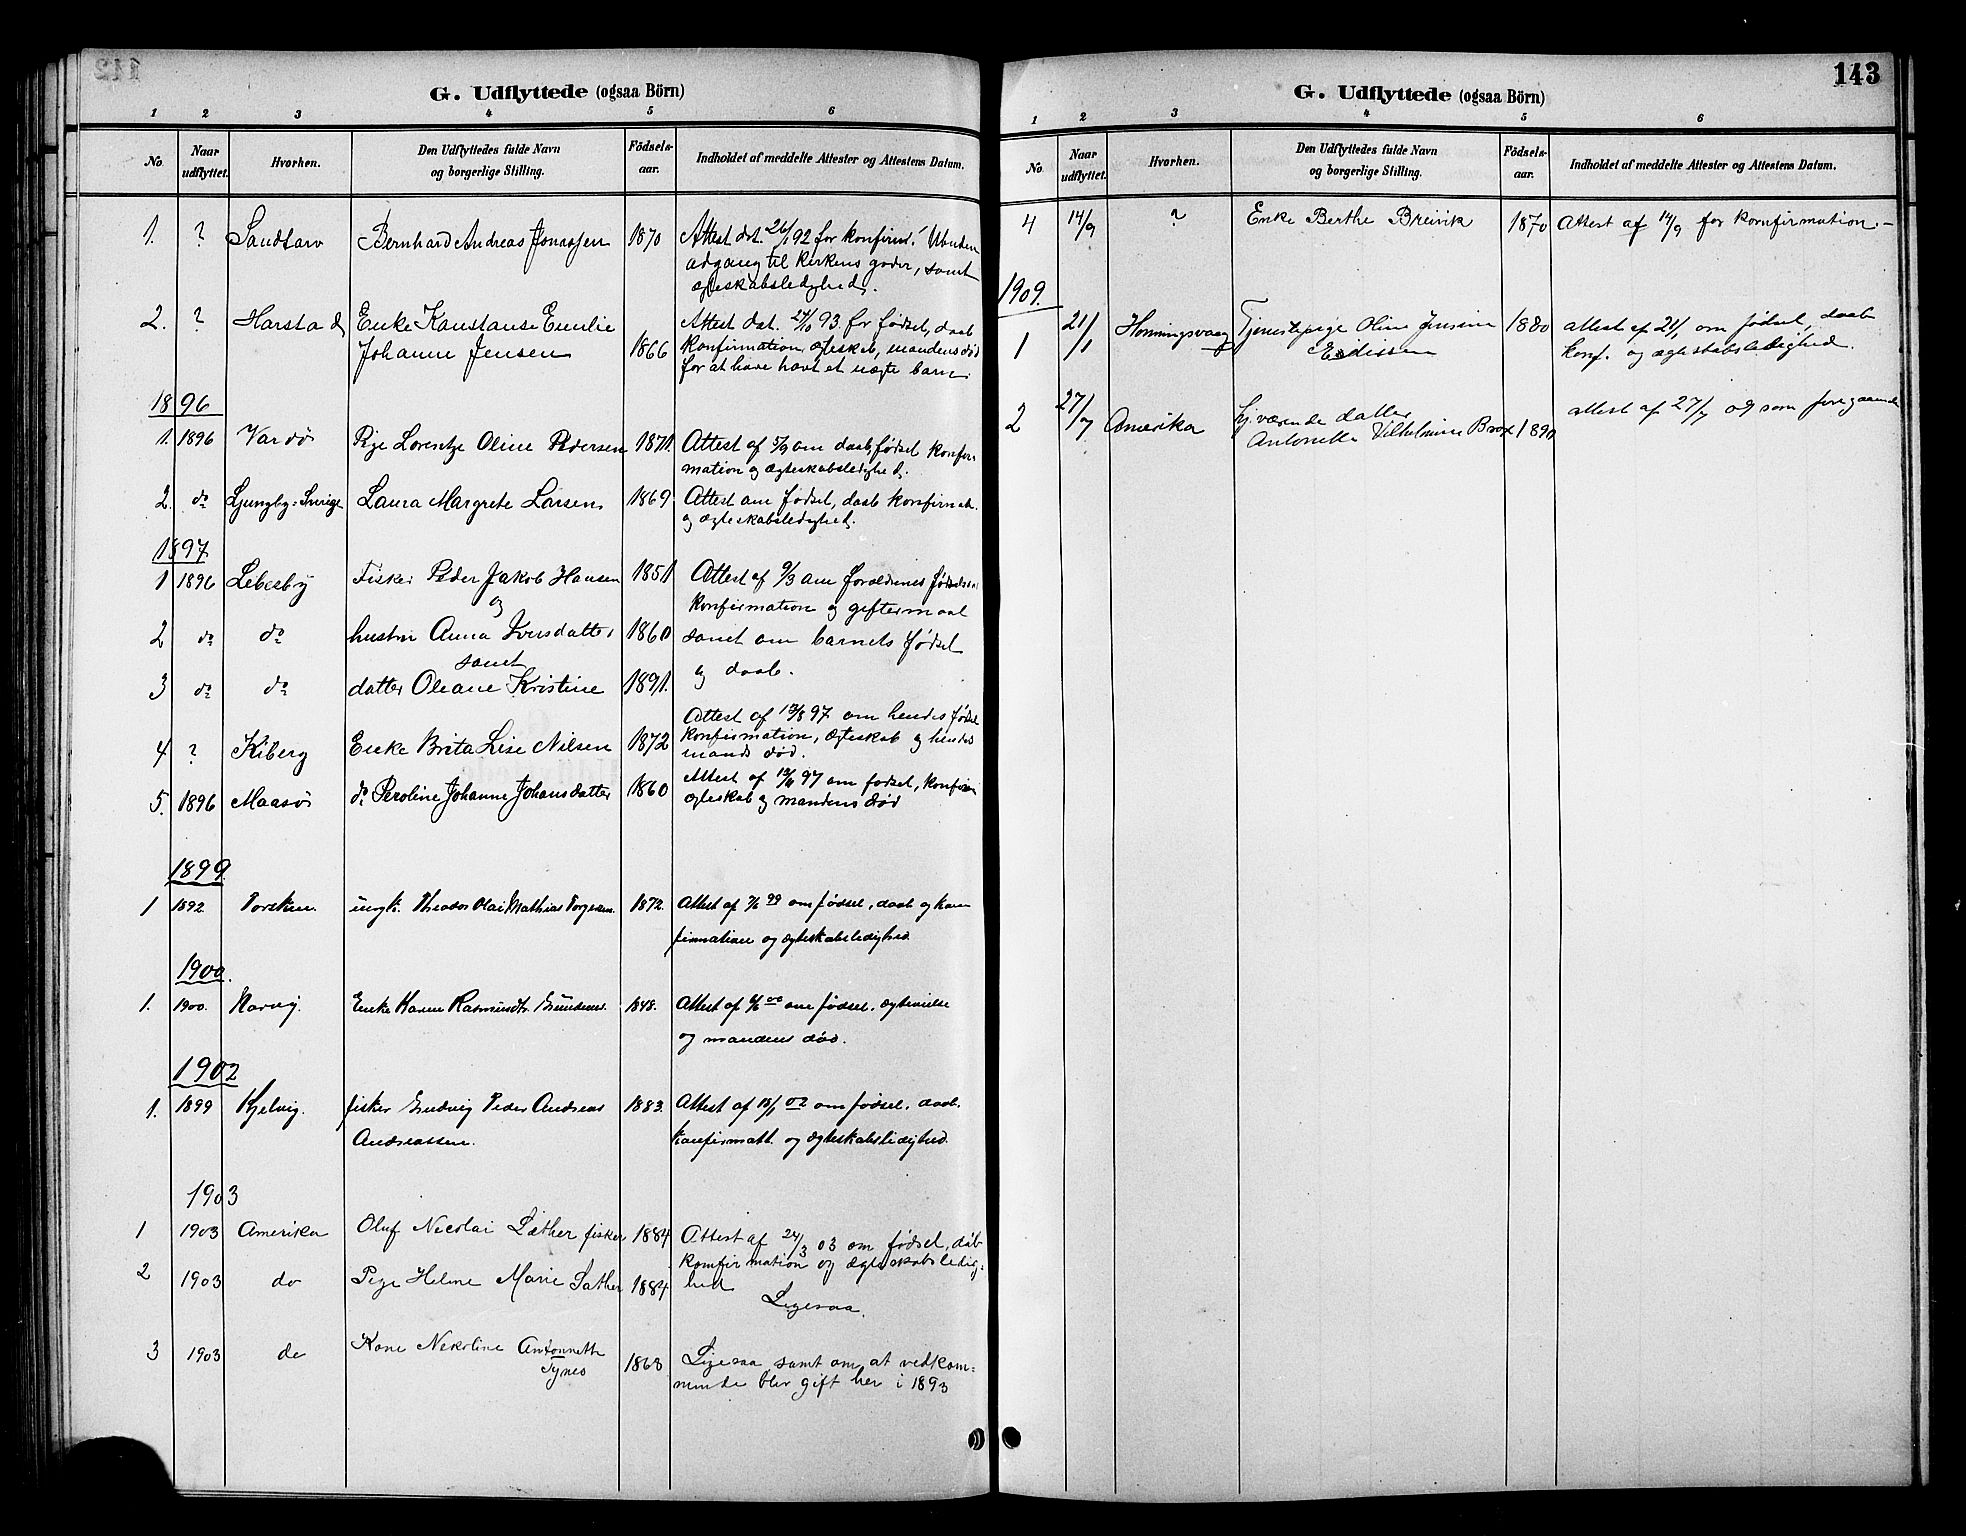 G. Udflyttede (ogsaa Börn)
1 2 3 4 5 6
No. Naar udflyttet. Hvorhen. Den Udflyttedes fulde Navn og borgerlige Stilling. Födsels-aar. Indholdet af meddelte Attester og Attestens Datum.
1. ? Sandtorv Bernhard Andreas Jonassen 1870 Attest dat. 26/1 92 for konfirm. Ubunden
adgang til kirkens goder, samt
egteskabsledighed.
2. ? Harstad Enke Konstanse Emilie Attest dat. 27/10 93 for fødsel, daab
Johanne Jensen 1866 konfirmation, egteskab, mandens død
for at have havt et uegte barn.
1896
1. 1896 Vardø Pige Lorentze Oline Pedersen 1871. Attest af 5/9 om daab, fødsel konfir-
mation og ægteskabsledighed.
2. do Ljungby i Sverige Laura Margrete Larsen 1869. Attest om fødsel, daab konfirmat.
og ægteskabsledighed.
1897
1 1896 Lebesby Fisker Peder Jakob Hansen 1851 Attest af 9/3 om forældrenes fødsel
og konfirmation og giftermaal
2 do do hustru Anna Iversdatter 1860 samt om barnets fødsel
samt
3 do do datter Oleane Kristine 1891. og daab.
4 ? Kiberg Enke Brita Lise Nilsen 1872 Attest af 12/8 97 om hendes fødsel
konfirmation, ægteskab og hendes
mands død.
5. 1896 Maasø do Peroline Johanne Johansdatter 1860 Attest af 97 om fødsel, konfirm
egteskab og mandens død
1899
1 1892 Torsken. ungk. Theodor Olai Mathias Torgersen. 1872. Attest af 99 om fødsel, daab og kon
firmation og ægteskabsledighed
1900.
1. 1900. Narvig. Enke Karen Rasmusdtr. 1848. Attest af 00 om fødsel, egtevielse
og mandens død.
1902
1. 1899 Kjelvig. fisker Ludvig Peder Andreas 1883. Attest af 18/1 02 om fødsel, daab,
Andreassen. konfirmatt. og ægteskabsledighed.
1903
1 1903 Amerika Oluf Nicolai Læther fisker 1884 Attest af 24/3 03 om fødsel, dåb
konfirmation og ægteskabsledig-
hed
2 1903 do Pige Helene Marie Sather 1884 Ligesaa.
3 1903 do Kone Nikoline Antonnette
Tynes 1863 Ligesaa samt om at vedkom-
mende blev gift her i 1893
143
G. Udflyttede (ogsaa Börn)
1 2 3 4 5 6
No. Naar udflyttet. Hvorhen. Den Udflyttedes fulde Navn og borgerlige Stilling. Födsels-aar. Indholdet af meddelte Attester og Attestens Datum.
4 14/9 ? Enke Berthe Breivik 1870 Attest af 14/9 for konfirmation.-
1909.
1 21/1 Honningsvaag Tjenestepige Oline Jensine 1880 attest af 21/1 om fødsel, daab
Edissen konf. og ægteskabsledighed.
2 27/7 Amerika hj.værende datter attest af 27/7 og som foregaaende
Antonette Vilhelmine Brox 1890